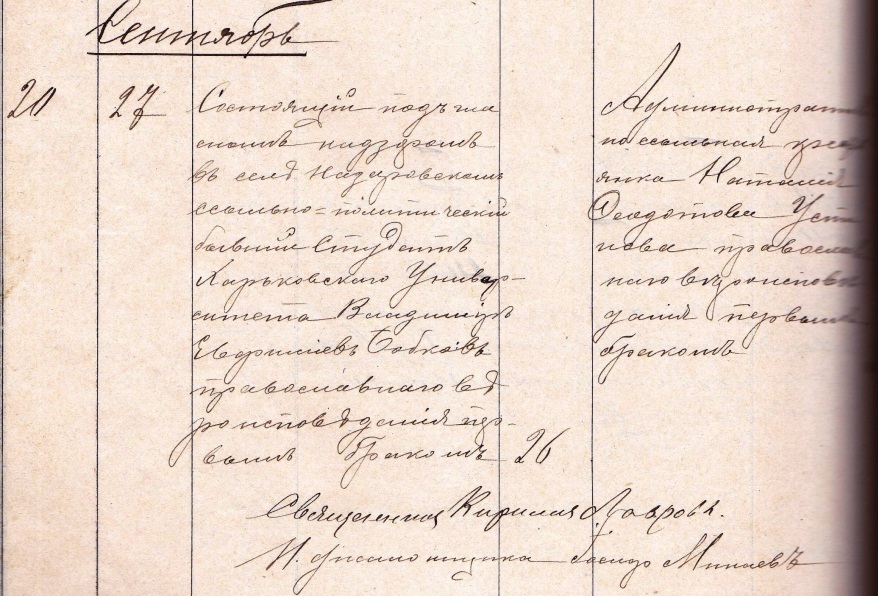 Сентябрь
20 27 Состоящій подъ гла
снымъ надзоромъ
въ селѣ Назаровскомъ
ссыльно=политическій
бывшій Студентъ
Харьковскаго Универ-
ситета Владиміръ
Бобковъ
православнаго вѣ
роисповѣданія пер-
вымъ бракомъ 26
Административ
но ссыльная крест
янка Наталія
Феодотова Усти
нова православ
наго вѣроисповѣ
данія первымъ
бракомъ
Священникъ Кириллъ Лавровъ.
И. д. псаломщика Минаевъ